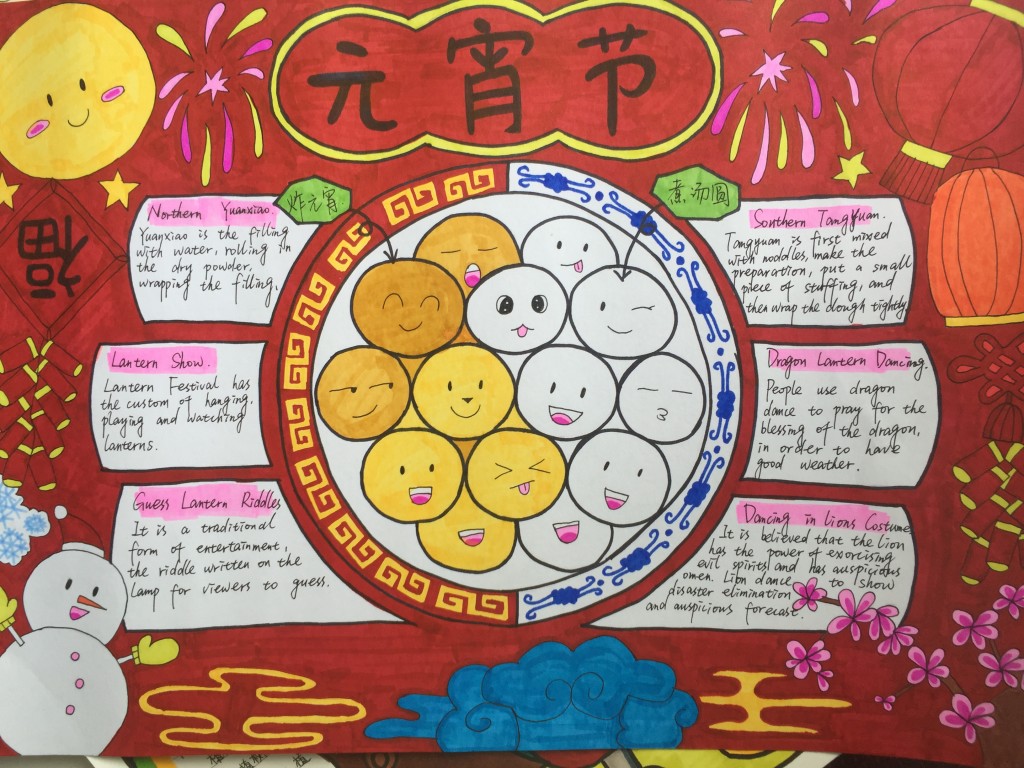 元宵节
福
炸元宵
煮汤圆
Northern Yuanxiao.
Yuanxiao is the filling
with water, rolling in
the dry powder.
wrapping the filling.
Lantern Show.
Lantern Festival has
the custom of hanging,
playing and watching
lanterns.
Guess Lantern Riddles
It is a traditional
form of entertainment,
the riddle written on the
Lamp for viewers to guess.
Southern TangYuan.
Tangyuan is first mixed
with noddles, make the
preparation, put a small
piece of stuffing, and
then wrap the dough tightly
Dragon Lantern Dancing.
People use dragon
dance to pray for the
blessing of the dragon,
in order to have
good weather.
Dancing in lions Costume
It is believed that the lion
has the power of exorcising
evil spirits and has auspicious
omen. Lion dance to show
disaster elimination
and auspicious forecast.